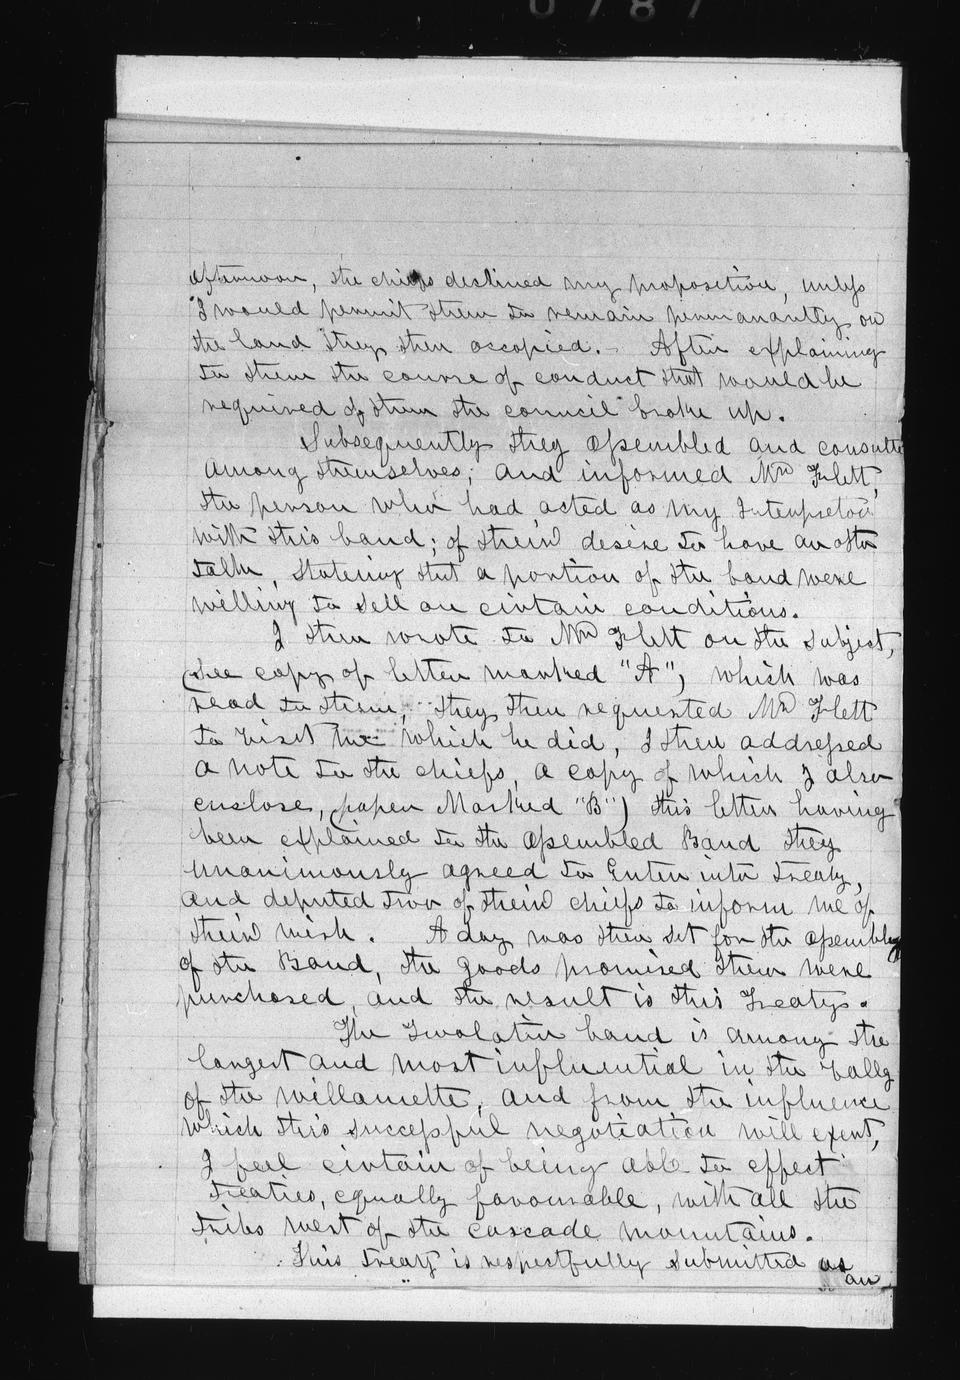 0787
afternoon, the chiefs declined my proposition, unless
I would permit them to remain permanantly on
the land they then occopied. - After explaining
to them the course of conduct that would be
required of them the council broke up.
Subsequently they assembled and consulted
among themselves; and informed Mr Flett,
the person who had acted as my Interpretor
with this band; of their desire to have an other
talk, stateing that a portion of the band were
willing to sell on cirtain conditions.
I then wrote to Mr Flett on the subject,
(see copy of letter marked "A") which was
read to them, they then requested Mr Flett
to visit me which he did, I then addressed
a note to the chiefs, a copy of which I also
enclose, (paper Marked "B") this letter having
been explained to the assembled Band they
unanimously agreed to Enter into treaty,
and deputed two of their chiefs to inform me of
their wish. A day was then set for the assembly
of the Band, the goods promised them were
purchased, and the result is this Treaty.
The Twalatin band is among the
largest and most influential in the vally
of the willamette, and from the influence
which this successful negotiation will exert,
I feel cirtain of being able to effect
treaties, equally favourable, with all the
tribes west of the cascade mountains.
This treaty is respectfully submitted as
an